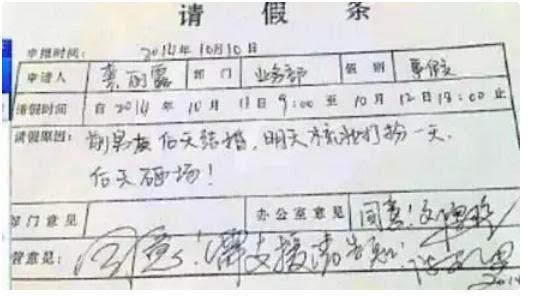 请假条
申报时间: 2014年10月10日
申请人 部门 业务部 假别 事假
请假时间 自2014年10月11日9:00至10月12日18:00止
请假原因: 前男友后天结婚,明天梳妆打扮一天.
后天砸场!
部门意见 办公室意见 同意!
管意见: 同意!需支援请告知!
2014